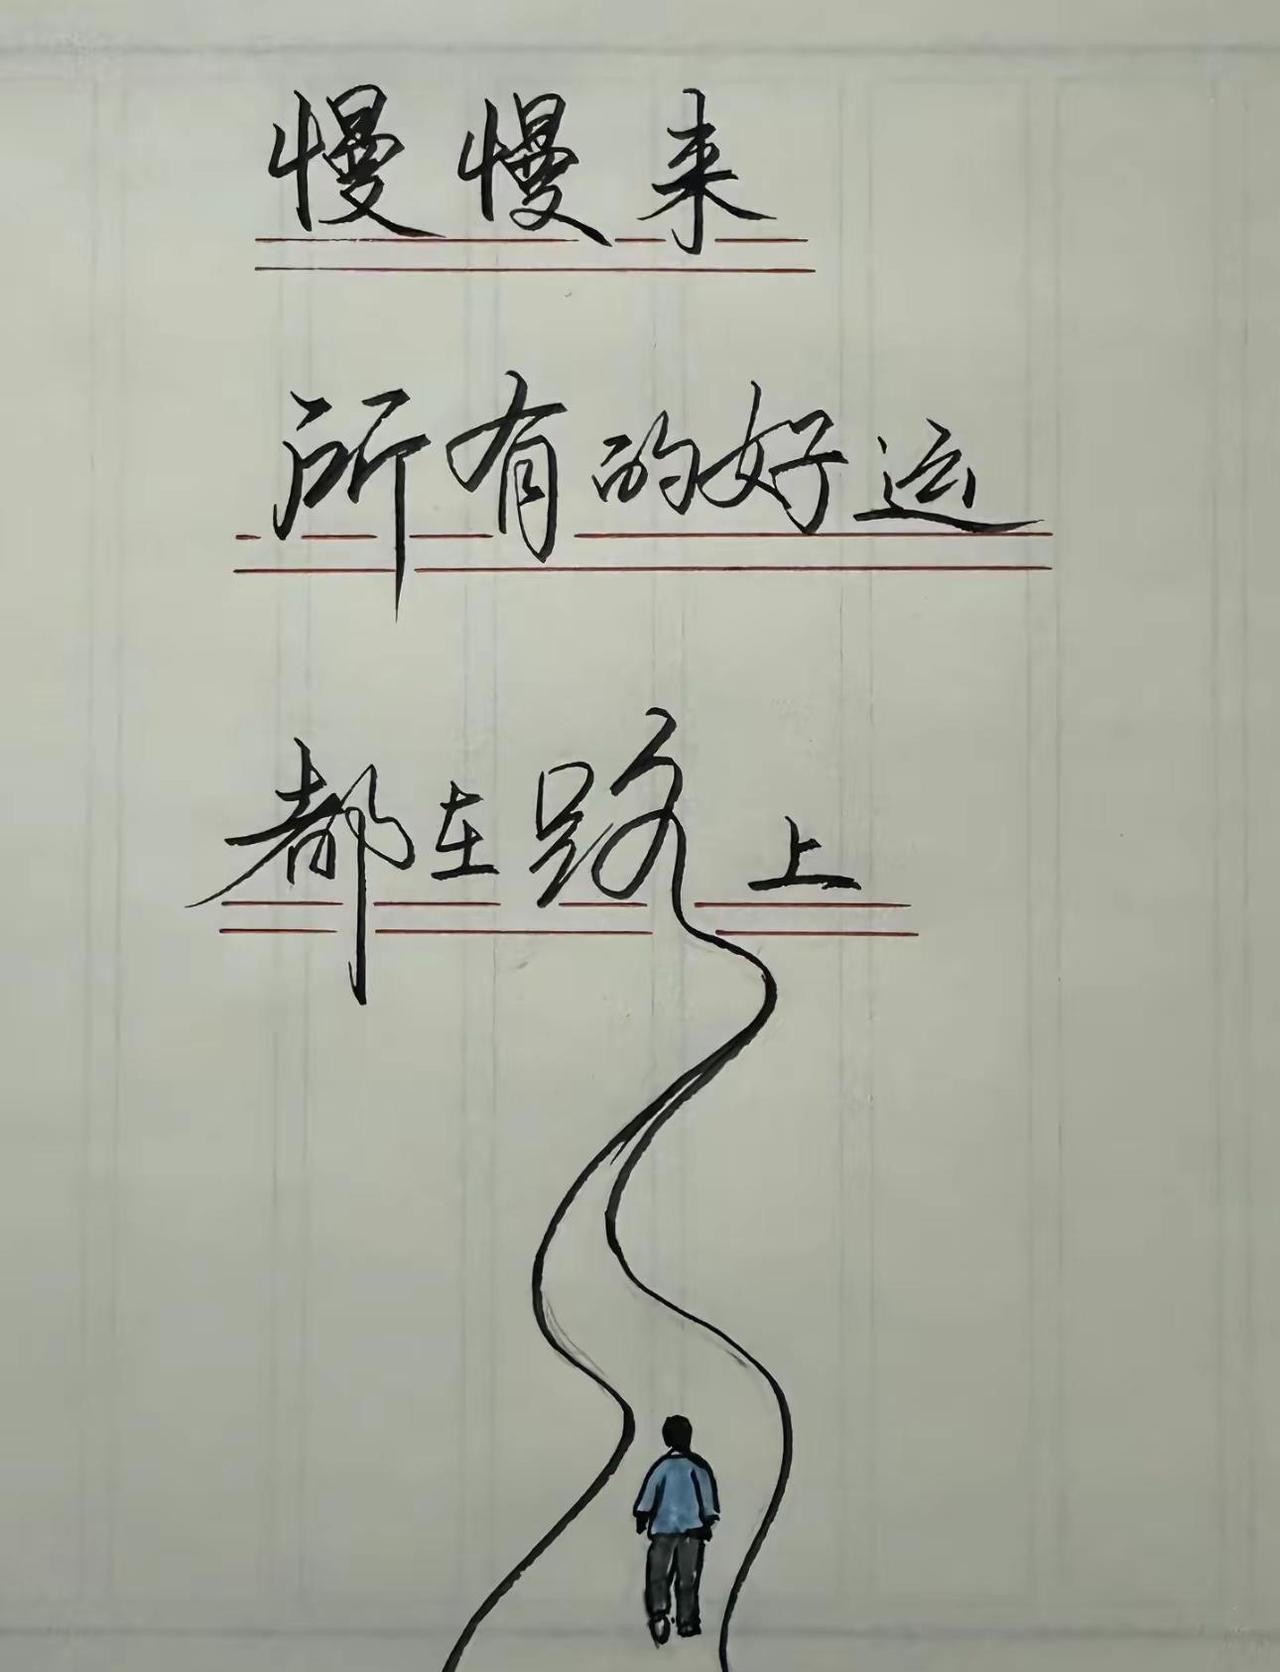 慢慢来
所有的好运
都在路上